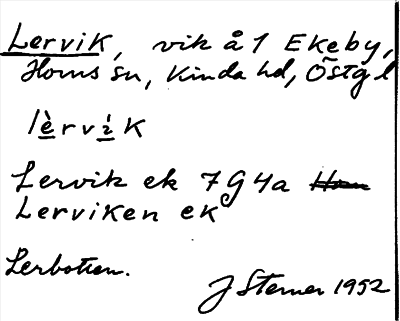 Lervik, vik å 1 Ekeby,
Horns sn, Kinda hd, Östg l
lèrvìk
Lervik ek 7G4a
Lerviken ek
Lerbotten.
J Sterner 1952